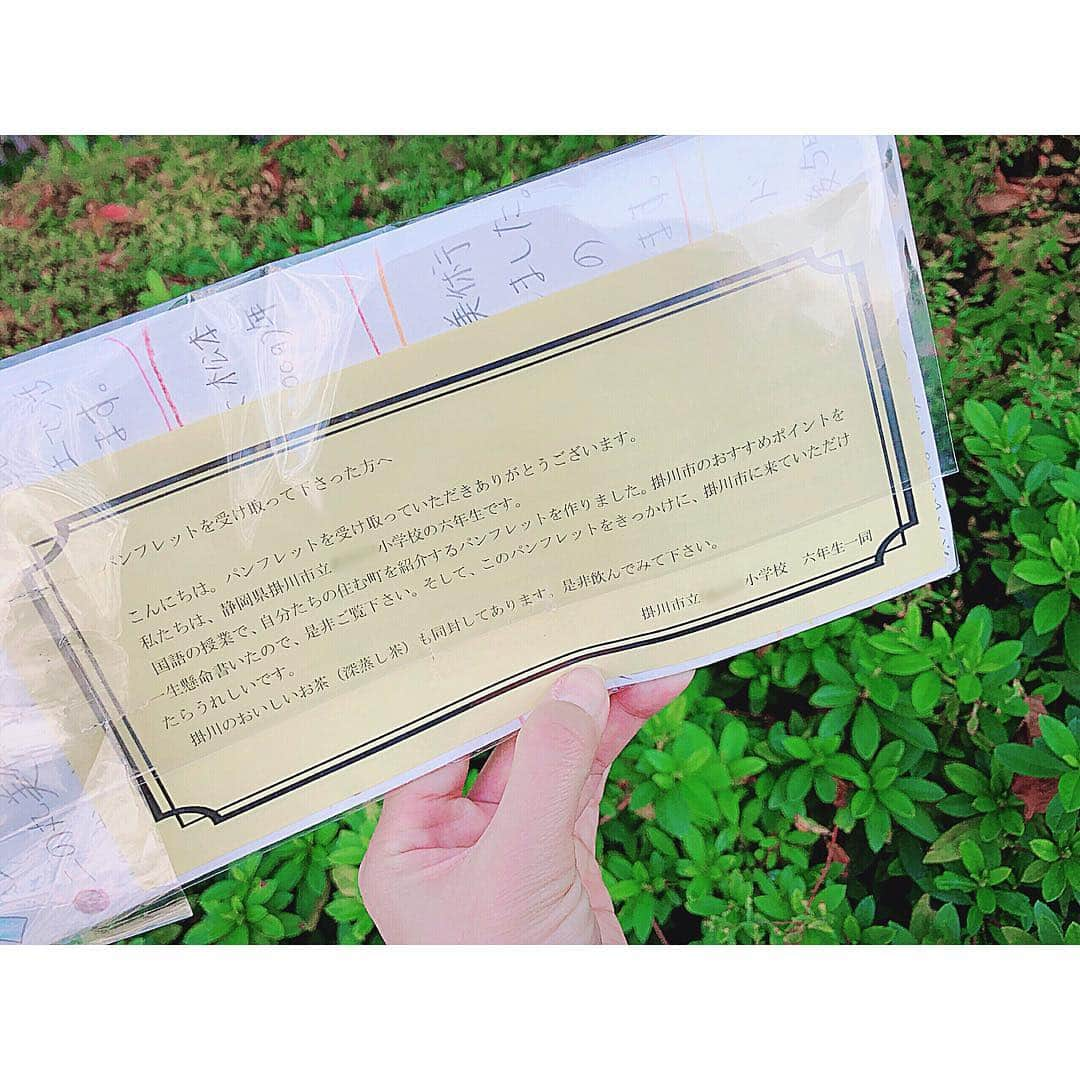 パンフレットを受け取って下さった方へ
こんにちは。パンフレットを受け取っていただきありがとうございます。
私たちは、静岡県掛川市立 小学校の六年生です。
国語の授業で、自分たちの住む町を紹介するパンフレットを作りました。掛川市のおすすめポイントを
一生懸命書いたので、是非ご覧下さい。そして、このパンフレットをきっかけに、掛川市に来ていただけ
たらうれしいです。
掛川のおいしいお茶（深蒸し茶）も同封してあります。是非飲んでみて下さい。
掛川市立 小学校 六年生一同
ました。
の
ます。
ます。